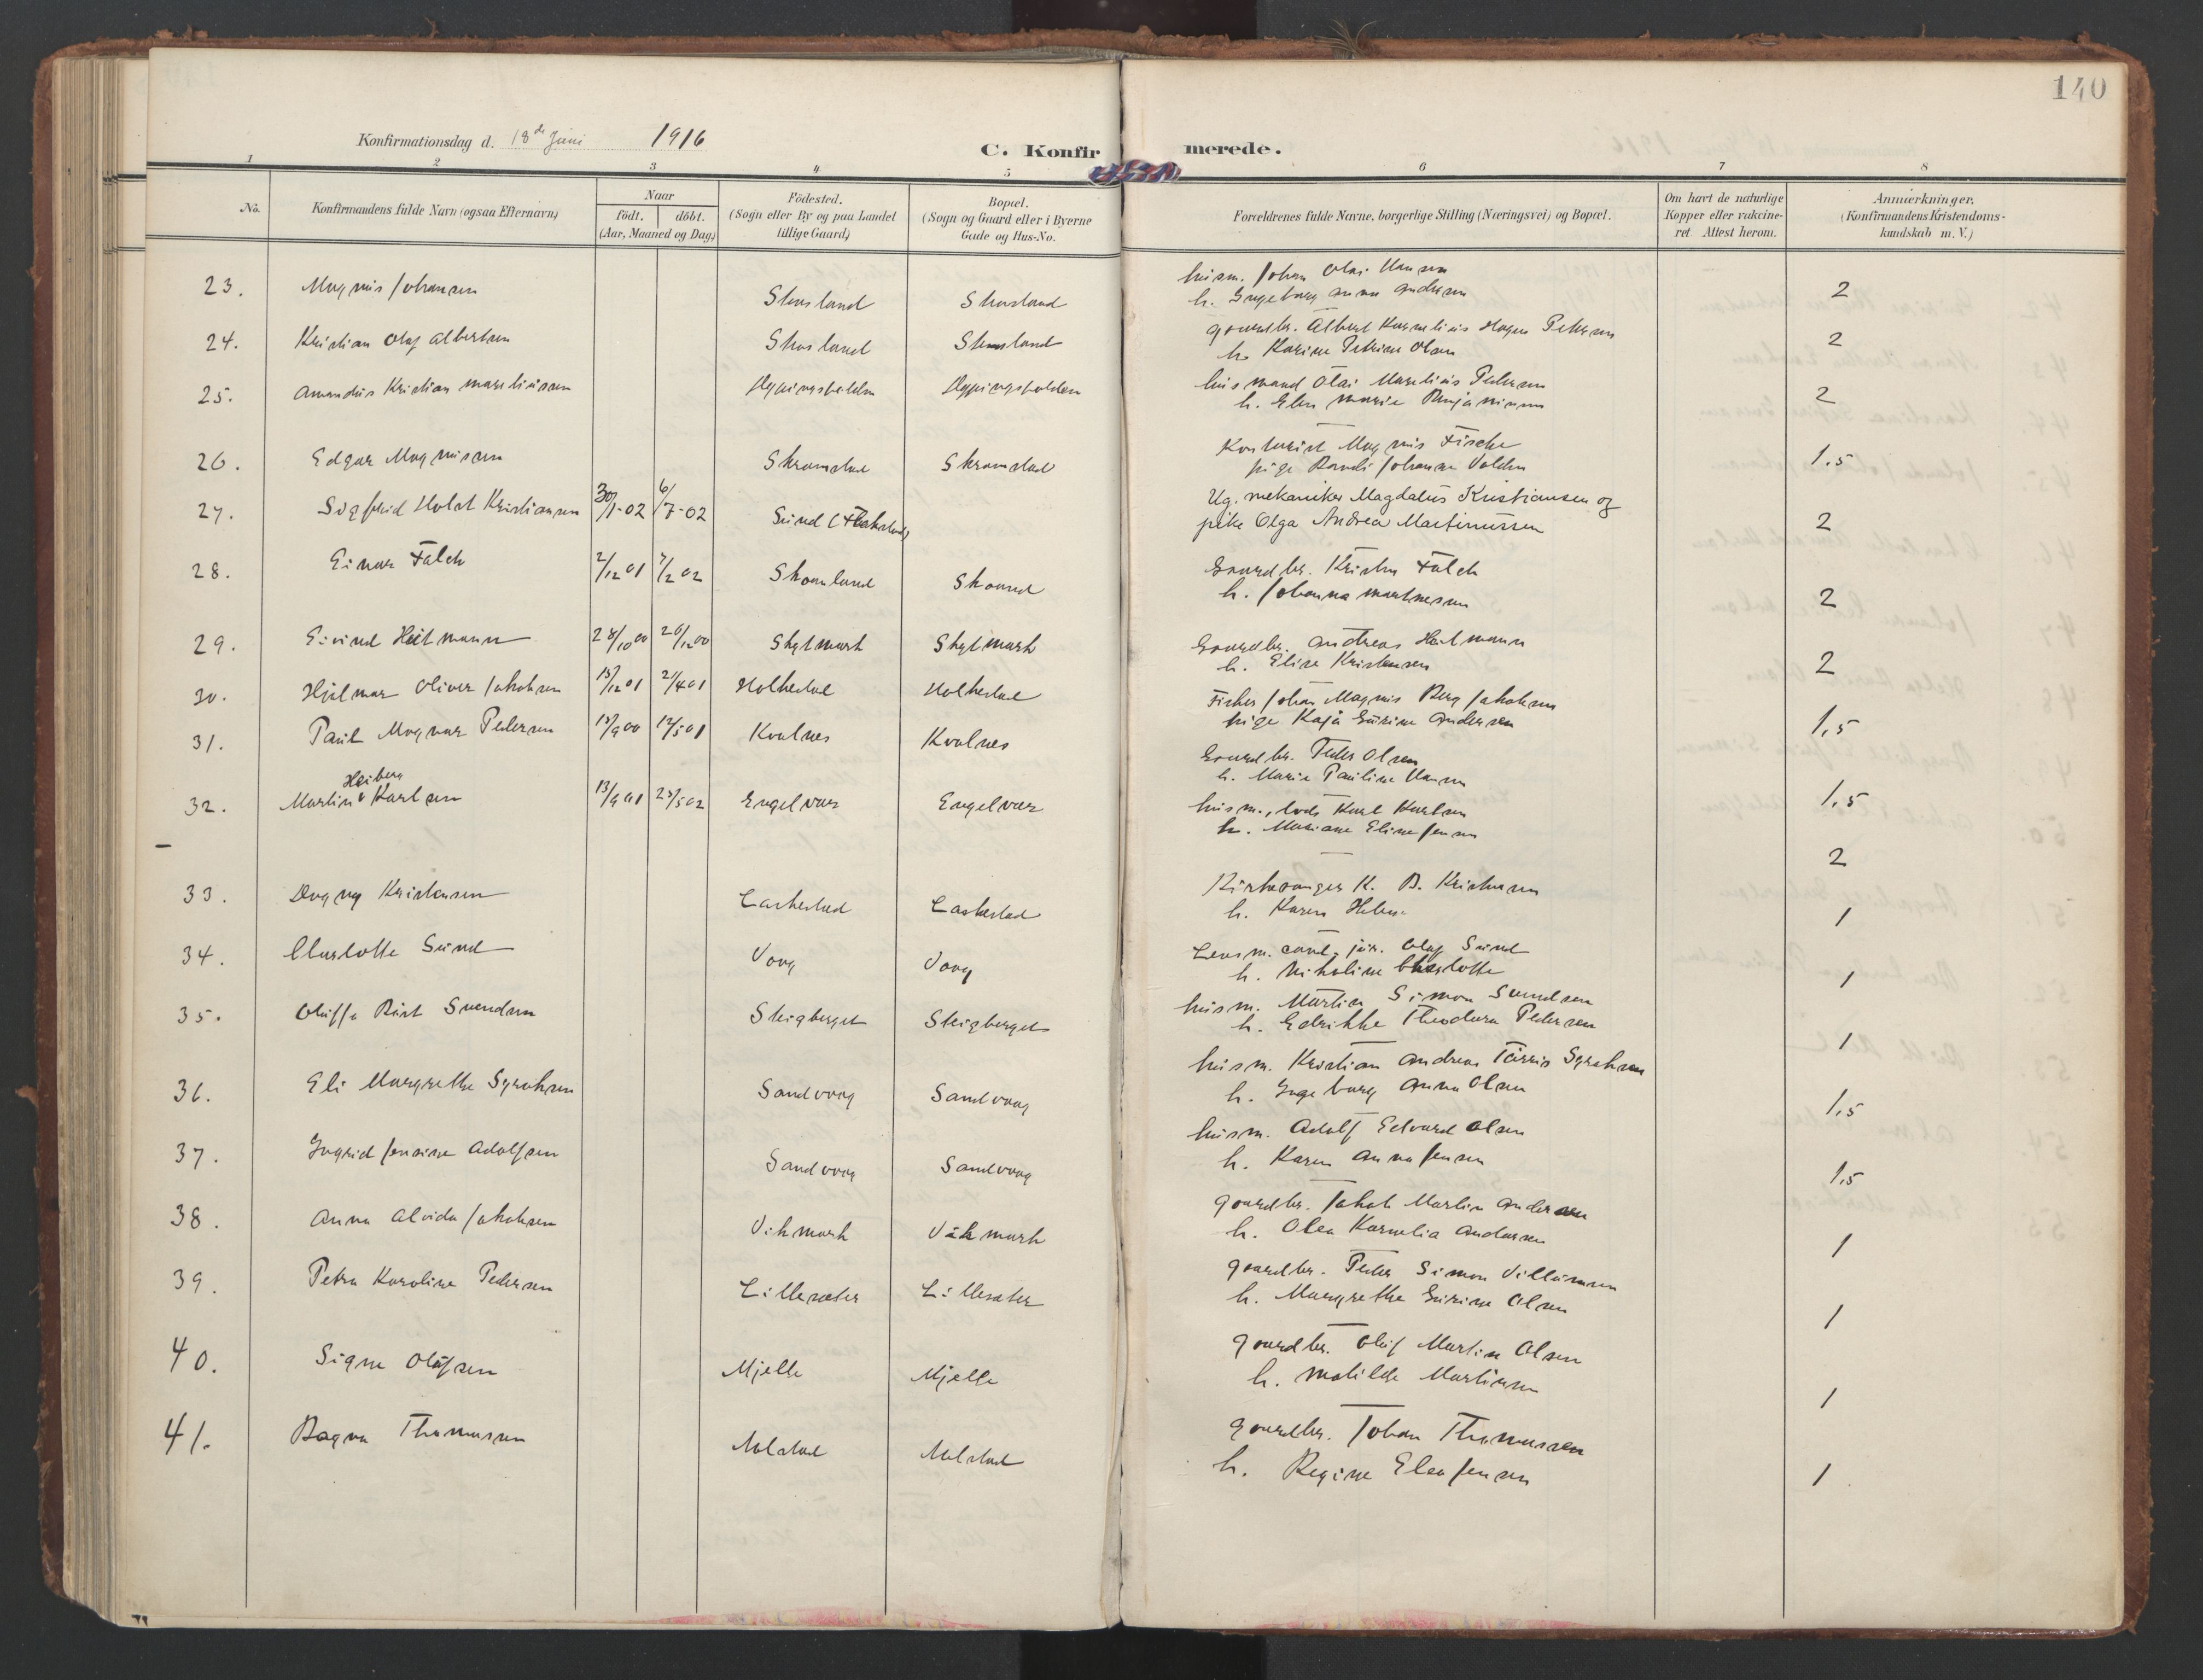 140
Konfirmationsdag d. 18de Juni 1916
C. Konfirmerede.
1 2 3 4 5 6 7 8
No.
Konfirmandens fulde Navn (ogsaa Efternavn)
Naar
födt. döbt.
(Aar, Maaned og Dag)
Födested.
(Sogn eller By og paa Landet
tillige Gaard)
Bopæl.
(Sogn og Gaard eller i Byerne
Gade og Hus-No.
Forældrenes fulde Navne, borgerlige Stilling (Næringsvei) og Bopæl.
Om havt de naturlige
Kopper eller vakcine-
ret. Attest herom.
Anmærkninger.
(Konfirmandens Kristendoms-
kundskab m. V.)
23. Magnus Johansen Skosland Skosland husm. Johan Olai Hansen 2
h. Ingeborg Anna Andersen
24. Kristian Olaf Albertsen Skosland gaardbr. Albert Kornelius Hagen Petersen 2
h. Karine Petrine Olsen
25. Amandus Kristian Mareliussen husmand Olai Marelius Pedersen 2
h. Elen Marie Benjaminsen
26. Edgar Magnussen Skramstad Skramstad Kontorist Magnus Fische 1,5
pige Randi Johanna Valden
27. Sigfrid Holst Kristiansen 30/1-02 6/7-02 Sund Ug. mekaniker Magdalus Kristiansen og 2
pike Olga Andrea Martinussen
28. Einar Falch 2/12 01 7/2 02 Skaanland Skaand Gaardbr. Kristen Falch 2
h. Johanna Martnesen
29. Eivind Heitmann 28/10 00 26/12 00 Skjelmark Skjelmark Gaardbr. Andreas Heitmann 2
h. Elise Kristensen
30. Hjalmar Oliver Jakobsen 15/12 01 2/4 01 Holkestad Holkestad Fisker Johan Magnus Berg Jakobsen 1,5
pige Kaja Gurine Andersen
31. Paul Magnar Pedersen 19/9 00 12/5 01 Kvalnes Kvalnes Gaardbr. Peder Olsen 1,5
h. Marie Pauline Hansen
Heiberg
32. Martin Karlsen 13/9 01 25/5 02 Engelvær Engelvær husm., lods Karl Karlsen 2
h. Mariane Eline Jensen
33. Dagny Kristensen Laskestad Laskestad Kirkesanger K. B. Kristensen 1
h. Karen Helene
34. Charlotte Sund Vaag Vaag Lensm. cand. jur. Olaf Sund 1
h. Nikoline Charlotte
35. Oluffa Birt Svendsen Steigberget Steigberget husm. Martin Simon Svendsen 1
h. Edrikke Theodora Pedersen
36. Eli Margrethe Syrahsen Sandvaag Sandvaag husm. Kristian Andreas Tarris Syrahsen 1,5
h. Ingeborg Anna Olsen
37. Ingrid Jensine Adolfsen Sandvaag Sandvaag husm. Adolf Edvard Olsen 1,5
h. Karen Anna Jensen
38. Anna Alvida Jakobsen Vikmark Vikmark gaardbr. Jakob Martin Andersen 1
h. Olea Kornelia Andersen
39. Petra Karoline Pedersen Lillesæter Lillesæter gaardbr. Peder Simon Villumsen 1
h. Margrethe Gurine Olsen
40. Signe Olufsen Mjelle Mjelle gaardbr. Oluf Martin Olsen 1
h. Matilde Martinsen
41. Bagna Thomassen Nolstad Nolstad gaardbr. Johan Thomassen 1
h. Regine Elea Jensen